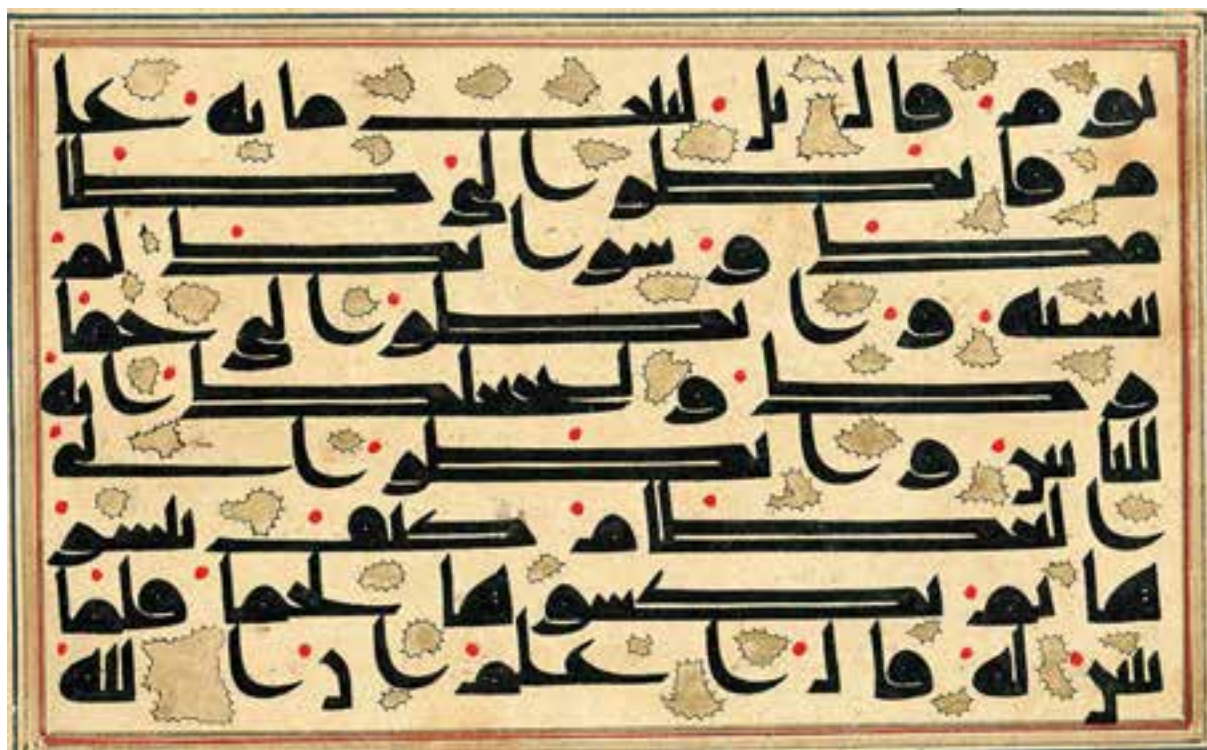 يوم قال بل لبثت مايه عا
م فانظر الى طعا
مك و شرابك لم
يتسنه وانظر الى حما
رك ولنجعلك ايه
للناس وانظر الى
العظام كيف ننشز
ها ثم نكسوها لحما فلما
تبين له قال اعلم ان الله